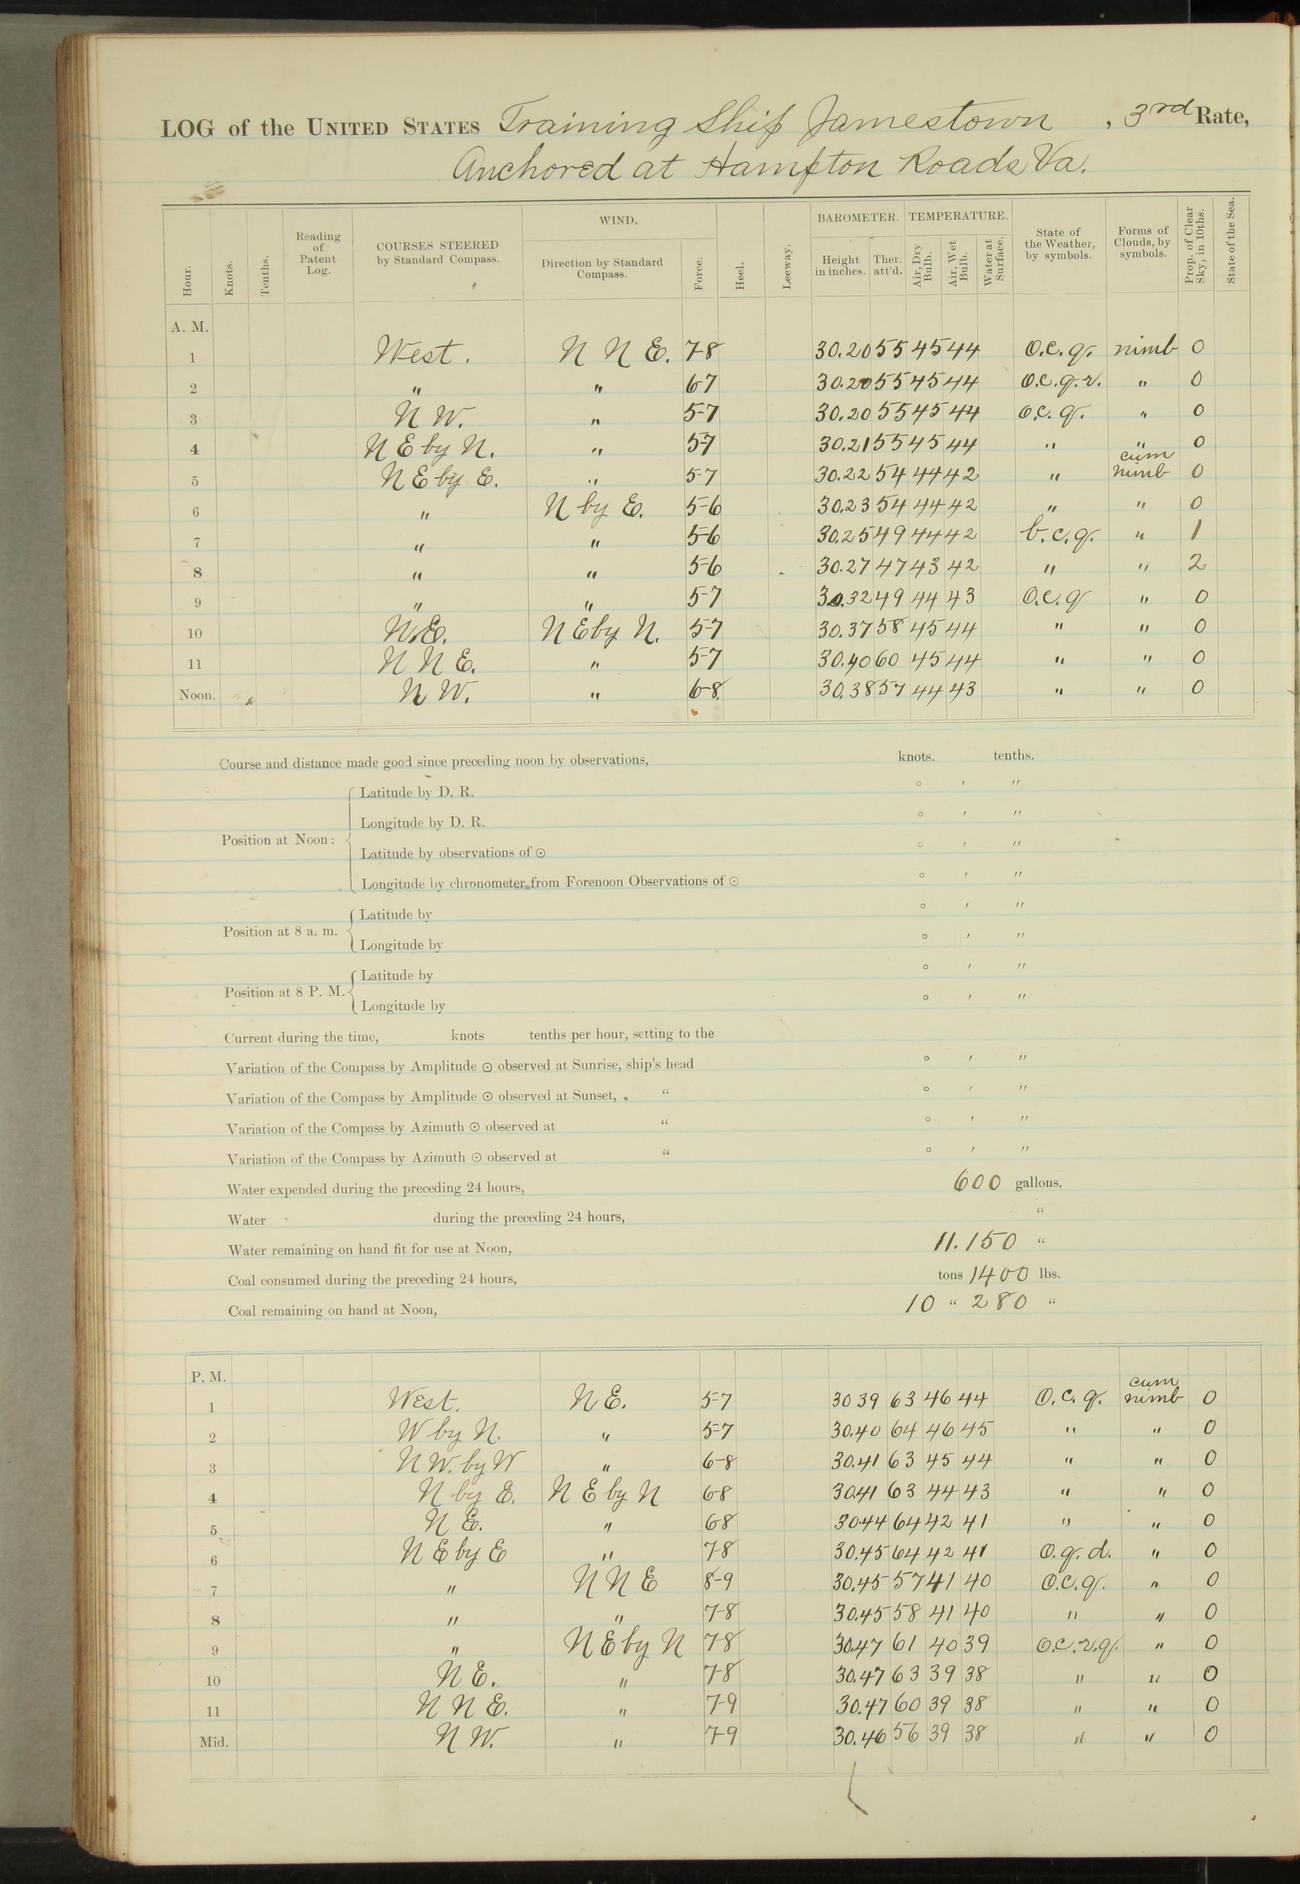 LOG of the UNITED STATES Training Ship Jamestown , 3rd Rate,
Anchored at Hampton Roads Va.
Hour. Knots. Tenths. Reading of Patent Log. COURSES STEERED by Standard Compass. WIND. Direction by Standard Compass. Force. Heel. Leeway. BAROMETER. Height in inches. Ther. att'd. TEMPERATURE. Air, Dry Bulb. Air, Wet Bulb. Water at Surface. State of the Weather, by symbols. Forms of Clouds, by symbols. Prop. of Clear Sky, in 10ths. State of the Sea.
A. M.
1 West. N N E. 7-8 30.20 55 45 44 o.c.q. nimb 0
2 " " 6-7 30.20 55 45 44 o.c.q.r. " 0
3 N W. " 5-7 30.20 55 45 44 o.c.q. " 0
4 N E by N. " 5-7 30.21 55 45 44 " " 0
5 N E by E. " 5-7 30.22 54 44 42 " cum nimb 0
6 " N by E. 5-6 30.23 54 44 42 " " 0
7 " " 5-6 30.25 49 44 42 b.c.q. " 1
8 " " 5-6 30.27 47 43 42 " " 2
9 " " 5-7 30.32 49 44 43 o.c.q " 0
10 N.E. N E by N. 5-7 30.37 58 45 44 " " 0
11 N N E. " 5-7 30.40 60 45 44 " " 0
Noon. N W. " 6-8 30.38 57 44 43 " " 0
Course and distance made good since preceding noon by observations, knots. tenths.
Position at Noon: Latitude by D. R. ° ′ ″
Longitude by D. R. ° ′ ″
Latitude by observations of ☉ ° ′ ″
Longitude by chronometer from Forenoon Observations of ☉ ° ′ ″
Position at 8 a. m. Latitude by ° ′ ″
Longitude by ° ′ ″
Position at 8 P. M. Latitude by ° ′ ″
Longitude by ° ′ ″
Current during the time, knots tenths per hour, setting to the
Variation of the Compass by Amplitude ☉ observed at Sunrise, ship's head ° ′ ″
Variation of the Compass by Amplitude ☉ observed at Sunset, " ° ′ ″
Variation of the Compass by Azimuth ☉ observed at " ° ′ ″
Variation of the Compass by Azimuth ☉ observed at " ° ′ ″
Water expended during the preceding 24 hours, 600 gallons.
Water during the preceding 24 hours, "
Water remaining on hand fit for use at Noon, 11.150 "
Coal consumed during the preceding 24 hours, tons 1400 lbs.
Coal remaining on hand at Noon, 10 " 280 "
P. M.
1 West. N E. 5-7 30 39 63 46 44 O.c.q. cum nimb 0
2 W by N. " 5-7 30.40 64 46 45 " " 0
3 N W. by W " 6-8 30.41 63 45 44 " " 0
4 N by E. N E by N 6-8 30.41 63 44 43 " " 0
5 N E. " 6-8 30.44 64 42 41 " " 0
6 N E by E " 7-8 30.45 64 42 41 O.q.d. " 0
7 " N N E 8-9 30.45 57 41 40 O.c.q. " 0
8 " " 7-8 30.45 58 41 40 " " 0
9 " N E by N 7-8 30.47 61 40 39 o.c.r.q. " 0
10 N E. " 7-8 30.47 63 39 38 " " 0
11 N N E. " 7-9 30.47 60 39 38 " " 0
Mid. N W. " 7-9 30.46 56 39 38 " " 0